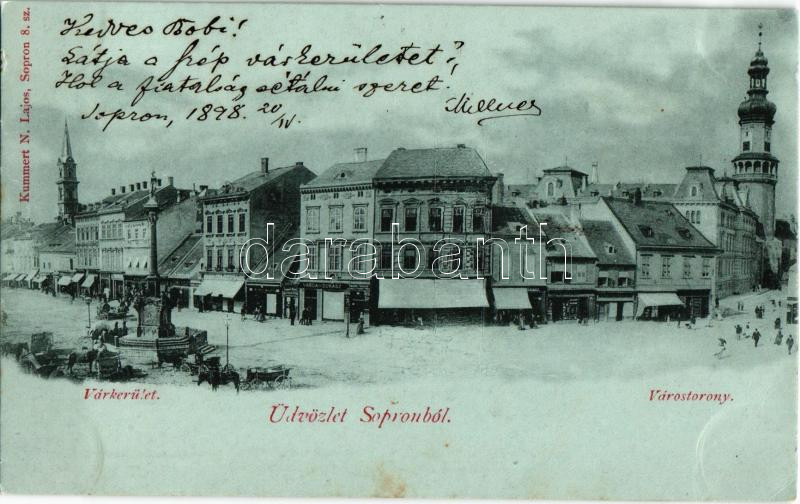 Kummert N. Lajos, Sopron 8. sz.
Kedves Bobi!
Látja a szép várkerületet?
Hol a fiatalság sétálni szeret!
Sopron, 1898. 20/IV.
Millner
darabanth
Várkerület.
Üdvözlet Sopronból.
Várostorony.